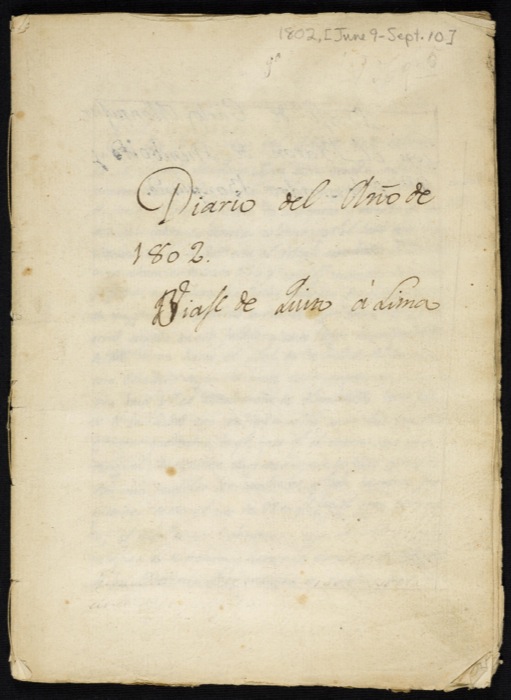 1802, [June 9-Sept. 10]
Diario del Año de
1802.
Viaje de Quito á Lima